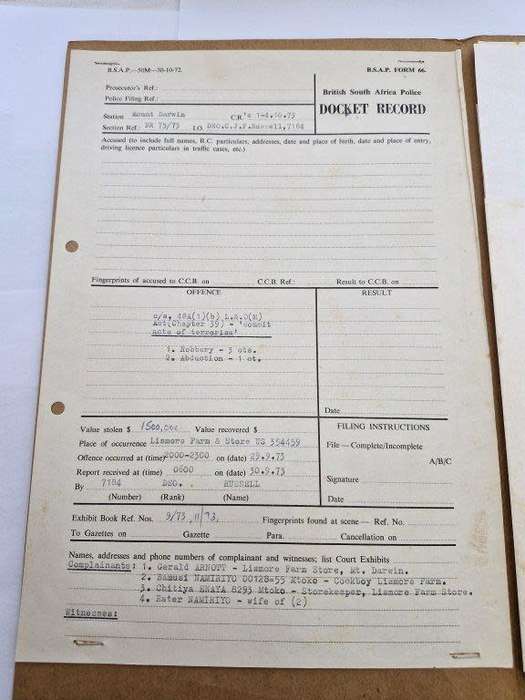 B.S.A.P.—50M—30-10-72.
B.S.A.P. FORM 66.
Prosecutor's Ref.:
Police Filing Ref.:
British South Africa Police
DOCKET RECORD
Station Mount Darwin CR's 1-4.10.73
Section Ref. 75/73 I.O. DSO.C.J.F.Russell,7184
Accused (to include full names, R.C. particulars, addresses, date and place of birth, date and place of entry,
driving licence particulars in traffic cases, etc.)
Fingerprints of accused to C.C.B. on C.C.B. Ref.: Result to C.C.B. on
OFFENCE
RESULT
c/s, 48A(1)(b) L.&O(M)
Act(Chapter 39) - 'commit
acts of terrorism'
1. Robbery - 3 cts.
2. Abduction - 1 ct.
Date
Value stolen $ Value recovered $
FILING INSTRUCTIONS
Place of occurrence Lismore Farm & Store US 394459
File — Complete/Incomplete
A/B/C
Offence occurred at (time) 2000-2300 on (date) 29.9.73
Report received at (time) 0600 on (date) 30.9.73
Signature
By 7184 DSO. RUSSELL
(Number) (Rank) (Name)
Date
Exhibit Book Ref. Nos. 9/73, 11/73, Fingerprints found at scene — Ref. No.
To Gazettes on Gazette Para. Cancellation on
Names, addresses and phone numbers of complainant and witnesses; list Court Exhibits
Complainants: 1. Gerald ARNOTT - Lismore Farm Store, Mt. Darwin.
2. Samusi NAMIRIYO 00128-55 Mtoko - Cookboy Lismore Farm.
3. Chitiya 8293 Mtoko - Storekeeper, Lismore Farm Store.
4. Ester NAMIRIYO - wife of (2)
Witnesses: